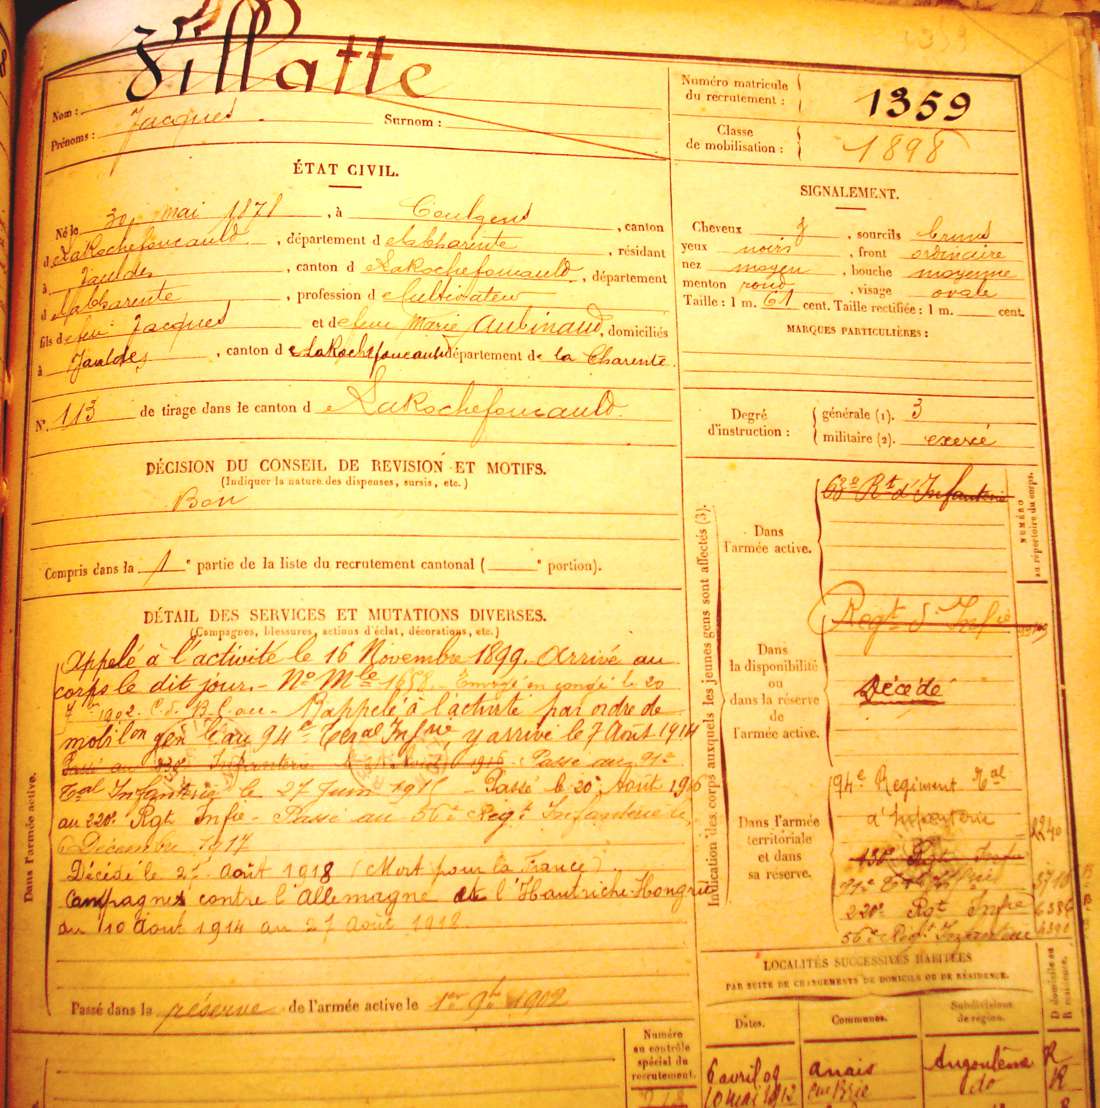 Nom : Villatte
Prénoms : Jacques Surnom :
Numéro matricule du recrutement : 1359
Classe de mobilisation : 1898
ÉTAT CIVIL.
Né le 30 mai 1878, à Coulgens, canton
d LaRochefoucauld, département d elaCharente, résidant
à Jauldes, canton d LaRochefoucauld, département
d elaCharente, profession d cultivateur
fils d efeu Jacques et d efeue Marie Aubinaud, domiciliés
à Jauldes, canton d e LaRochefoucauld département de la Charente.
N° 113 de tirage dans le canton d LaRochefoucauld.
SIGNALEMENT.
Cheveux , sourcils bruns
yeux noirs, front ordinaire
nez moyen, bouche moyenne
menton rond, visage ovale
Taille : 1 m. 61 cent. Taille rectifiée : 1 m. cent.
MARQUES PARTICULIÈRES :
Degré d'instruction : générale (1). 3
militaire (2). exercé
DÉCISION DU CONSEIL DE REVISION ET MOTIFS.
(Indiquer la nature des dispenses, sursis, etc.)
Bon
Compris dans la 1e partie de la liste du recrutement cantonal ( e portion).
DÉTAIL DES SERVICES ET MUTATIONS DIVERSES.
(Campagnes, blessures, actions d'éclat, décorations, etc.)
Dans l'armée active.
Appelé à l'activité le 16 Novembre 1899. Arrivé au
corps le dit jour. - No Mle 1658 Envoyé en congé le 20
7bre 1902. C. de B. C. acc. - Rappelé à l'activité par ordre de
mobil on gén le au 94e Teral Infie, y arrivé le 7 Août 1914
Passé au Infanterie 1916 - Passé au 91e
Tal Infanterie le 27 Juin 191 - Passé le 20 Août 1916
au 220e Rgt Infie - Passé au 56e Régt Infanterie le
6 Décembre 1917
Décédé le 27 Août 1918 (Mort pour la France)
Campagnes contre l'Allemagne et l'Hautriche-Hongrie
du 10 Août 1914 au 27 Août 1918
Passé dans la réserve de l'armée active le 1er 9bre 1902
Indication des corps auxquels les jeunes gens sont affectés (3).
NUMÉRO au répertoire du corps.
Dans l'armée active.
63e Rt d'Infanterie
Dans la disponibilité ou dans la réserve de l'armée active.
Regt d'Infie
Décédé
Dans l'armée territoriale et dans sa réserve.
94e Régiment Tal
d'Infanterie 2240
Rgt Infie
91e 5710
220e Rgt Infie 6386
56e Régt Infanterie
LOCALITÉS SUCCESSIVES HABITÉES
PAR SUITE DE CHANGEMENTS DE DOMICILE OU DE RÉSIDENCE.
Dates. Communes. Subdivisions de région. D domicile ou R résidence.
6 avril 09 Anais Angoulême R
10 mai 1912 Brie do R
Numéro au contrôle spécial du recrutement.